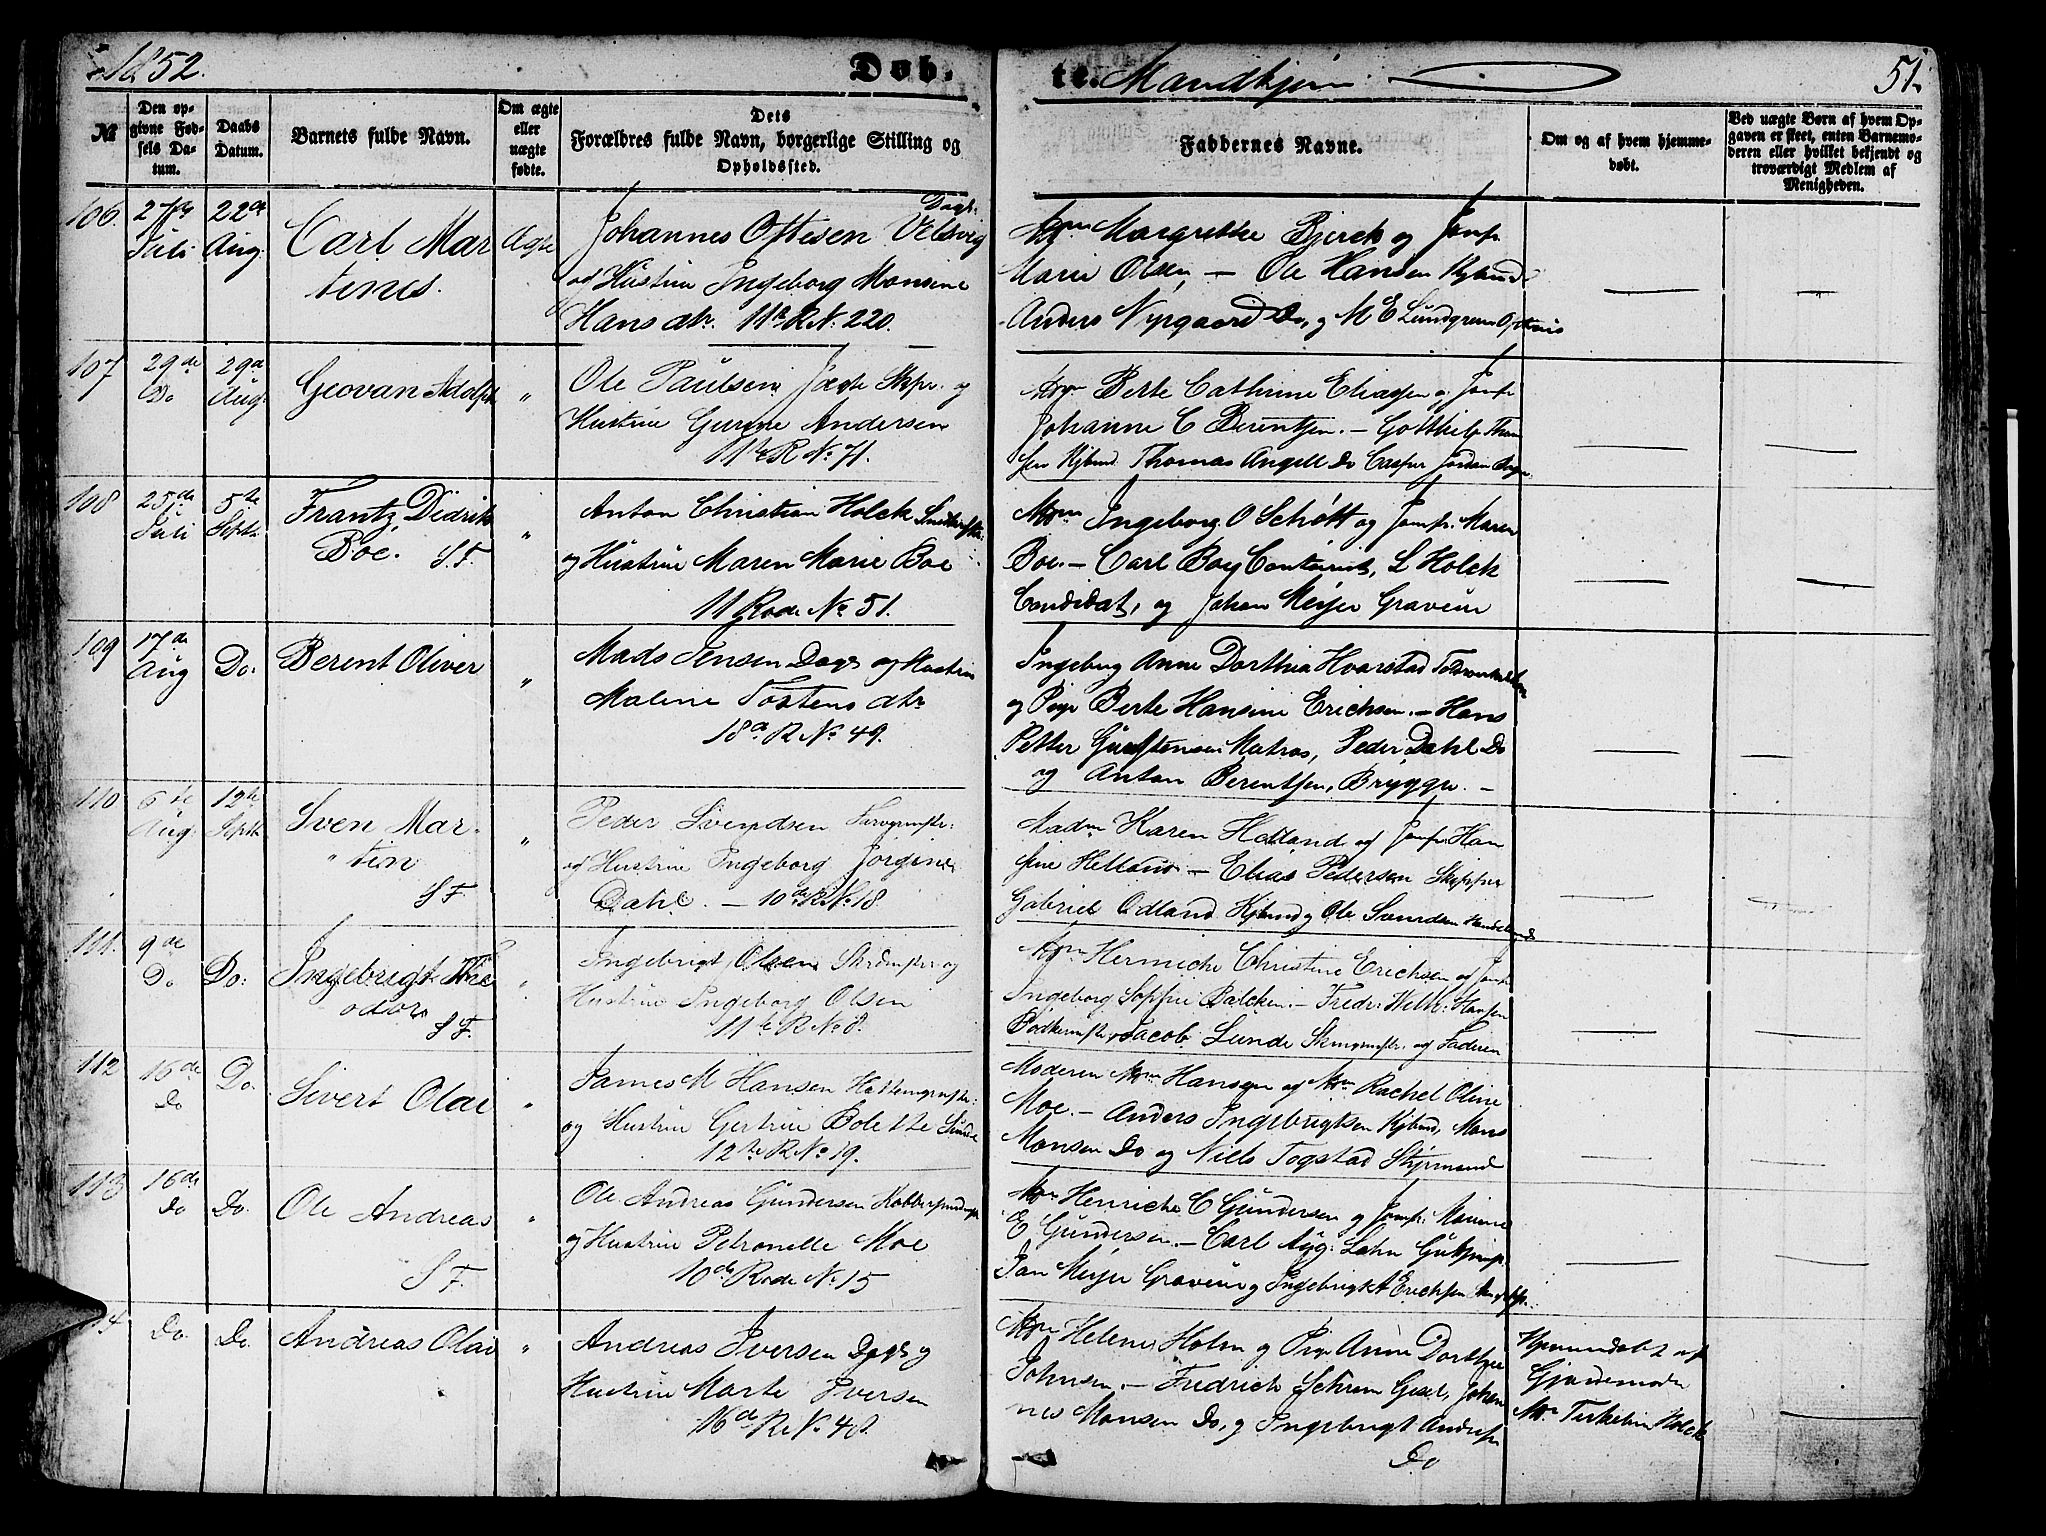 1852.
Døb-
te. Mandkjøn
51.
№
Den op-
givne Fød-
sels Da-
tum.
Daabs
Datum.
Barnets fulde Navn.
Om ægte
eller
uægte
fødte.
Dets
Forældres fulde Navn, borgerlige Stilling og
Opholdssted.
Faddernes Navne.
Om og af hvem hjemme-
døbt.
Ved uægte Børn af hvem Op-
gaven er skeet, enten Barnemo-
deren eller hvilket bekjendt og
troværdigt Medlem af
Menigheden.
106. 22de
Juli Aug.
Carl Mar
tinus.
Ægte
Johannes Ottesen Velsvig Dags.
og Hustrue Ingeborg Monsine
Hansdtr. 11te R No. 220.
Mdm Margrethe Bjerck og Jomfr
Marie Olsen, — Ole Hansen Kjbmd
Anders Nygaard Do, og M E Lundgreen
107 29de 29de
Do Aug.
Geovan Adolph
"
Ole Paulsen Jægte Skpr. og
Hustrue Gurine Andersen
11te R No 71.
Mdm Berte Cathrine Eliassen og Jomfr
Johanne C Berentsen. — Gotthilf Thom
sen Kjbmd. Thomas Angell Do Casper Jordan
108 25de 5te
Juli Septr.
Frantz Didrik
Boe. S F.
"
Anton Christian Holck
og Hustrue Maren Marie Boe
11 Rode No 51.
Mdm Ingeborg O Schøtt og Jomfr. Maren
Boe. — Carl Boey Contorist, L Holck
Candidat, og Johan Meyer Graveur
109 17de
Aug Do.
Berent Oliver
"
Mads Jensen Dags og Hustrue
Malene Tostensdtr
18de R No 49.
Ingeborg Anne Dorthia Hvarstad
og Pige Berte Hansine Erichsen. — Hans
Petter Matros, Peder Dahl Do
og Anton Berentsen, Brygge. —
110 6te 12te
Aug. Septr
Sven Mar-
tin
S F.
"
Peder Svendsen
og Hustrue Ingeborg Jorgine
Dahl. — 10de R No. 18
Madm Karen Helland og Jomfr. Han
sine Helland — Elias Pedersen Skipper
Gabriel Odland Kjbmd og Ole Svendsen
111. 9de
Do Do.
Ingebrigt The
odor
S F.
"
Ingebrigt Olsen Skrdmstr. og
Hustrue Ingeborg Olsen
11te R No 8.
Mdm Christine Erichsen og Jomfr
Ingeborg Soffie Balcken. — Fredr. Wilh. Hansen
Bødkermstr, Jacob Lunde og Faderen
112 16de Do.
Do
Sivert Olai
"
James M Hansen
og Hustrue Gertrue Bolette
12te R No 19.
Moderen Mdm Hansen og Mdm Rachel Oline
Moe. — Anders Ingebrigtsen Kjbmd, Mons
Monsen Do og Niels Togstad Styrmand
113 16de
Do Do.
Ole Andreas
S F.
"
Ole Andreas Gundersen
og Hustrue Petronelle Moe
10de Rode No 15
Mdm Henriche C Gundersen og Jomfr.
E Gundersen. — Carl Aug. Lahn
Jan Meyer Graveur og Ingebrigt A Erichsen
Do. Do.
Andreas Olai
"
Andreas Iversen Dags og
Hustrue Marte Iversen
16de R No. 48.
Mdm Helene Holm og Pige Anne Dorthea
Johnsen. — Fredrich Schrem Gesel, Johan
nes Monsen Do, og Ingebrigt
Do
Hjemmedøbt af
Gjordemoder
Holck